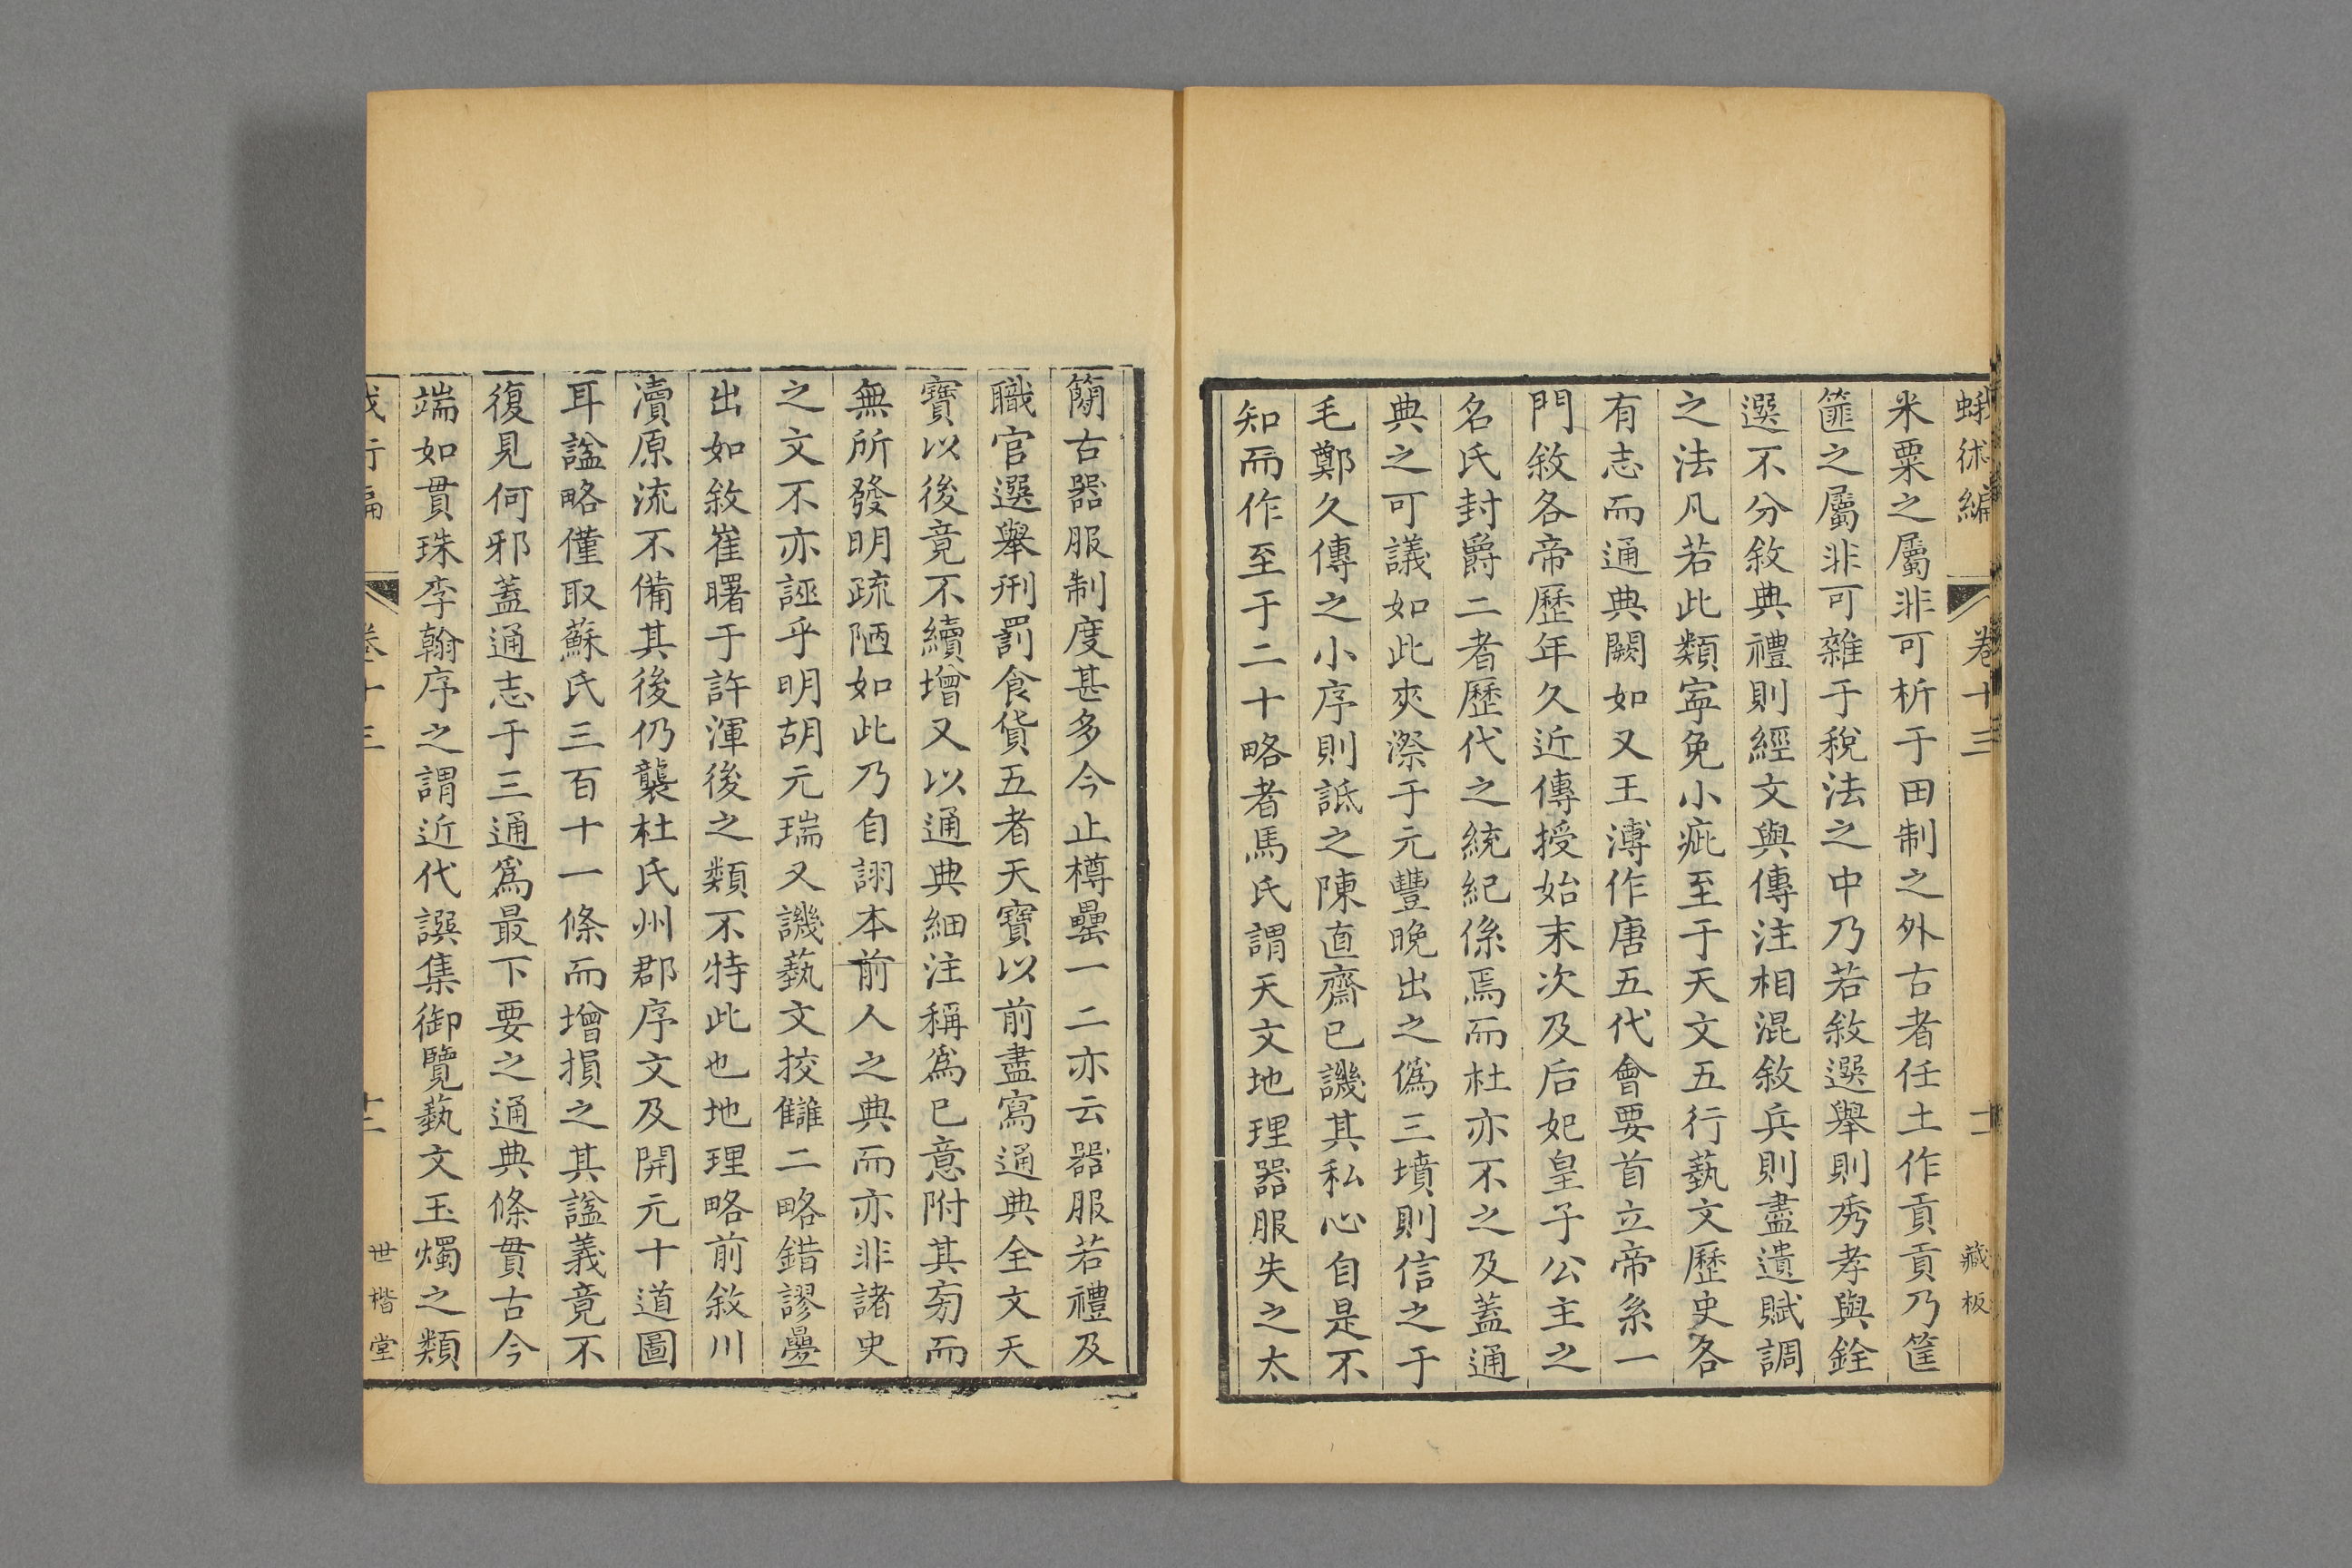 蛾術編 卷十三 藏板
米粟之屬非可析于田制之外古者任土作貢貢乃筐
篚之屬非可雜于稅法之中乃若敘選舉則秀孝與銓
選不分敘典禮則經文與傳注相混敘兵則盡遺賦調
之法凡若此類寍免小疵至于天文五行藝文歷史各
有志而通典闕如又王溥作唐五代會要首立帝系一
門敘各帝歷年久近傳授始末次及后妃皇子公主之
名氏封爵二者歷代之統紀係焉而杜亦不之及蓋通
典之可議如此夾漈于元豐晚出之僞三墳則信之于
毛鄭久傳之小序則詆之陳直齋已譏其私心自是不
知而作至于二十略者馬氏謂天文地理器服失之太
簡古器服制度甚多今止樽罍一二亦云器服若禮及
職官選舉刑罰食貨五者天寶以前盡寫通典全文天
寶以後竟不續增又以通典細注稱爲已意附其旁而
無所發明疏陋如此乃自詡本前人之典而亦非諸史
之文不亦誣乎明胡元瑞又譏藝文挍讎二略錯謬曡
出如敘崔曙于許渾後之類不特此也地理略前敘川
瀆原流不備其後仍襲杜氏州郡序文及開元十道圖
耳諡略僅取蘇氏三百十一條而增損之其諡義竟不
復見何邪蓋通志于三通爲最下要之通典條貫古今
端如貫珠李翰序之謂近代譔集御覽藝文玉燭之類
卷十三 世楷堂